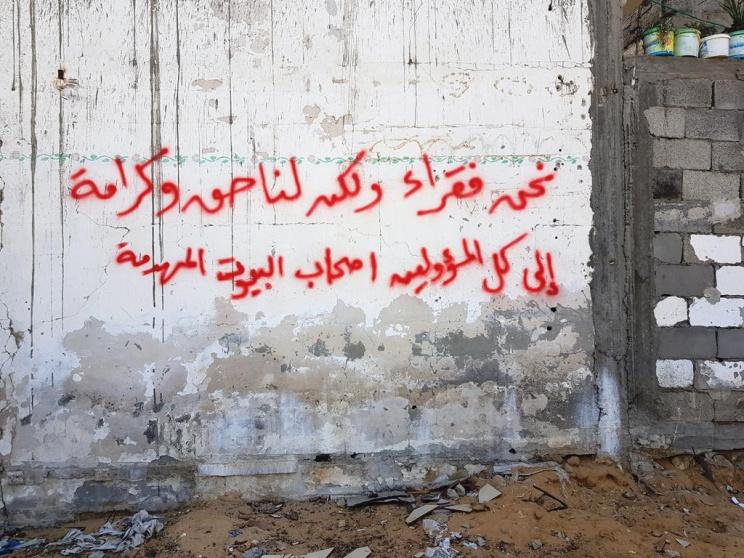 نحن فقراء ولكن لنا حق وكرامة
إلى كل المسؤولين اصحاب البيوت المهدمة